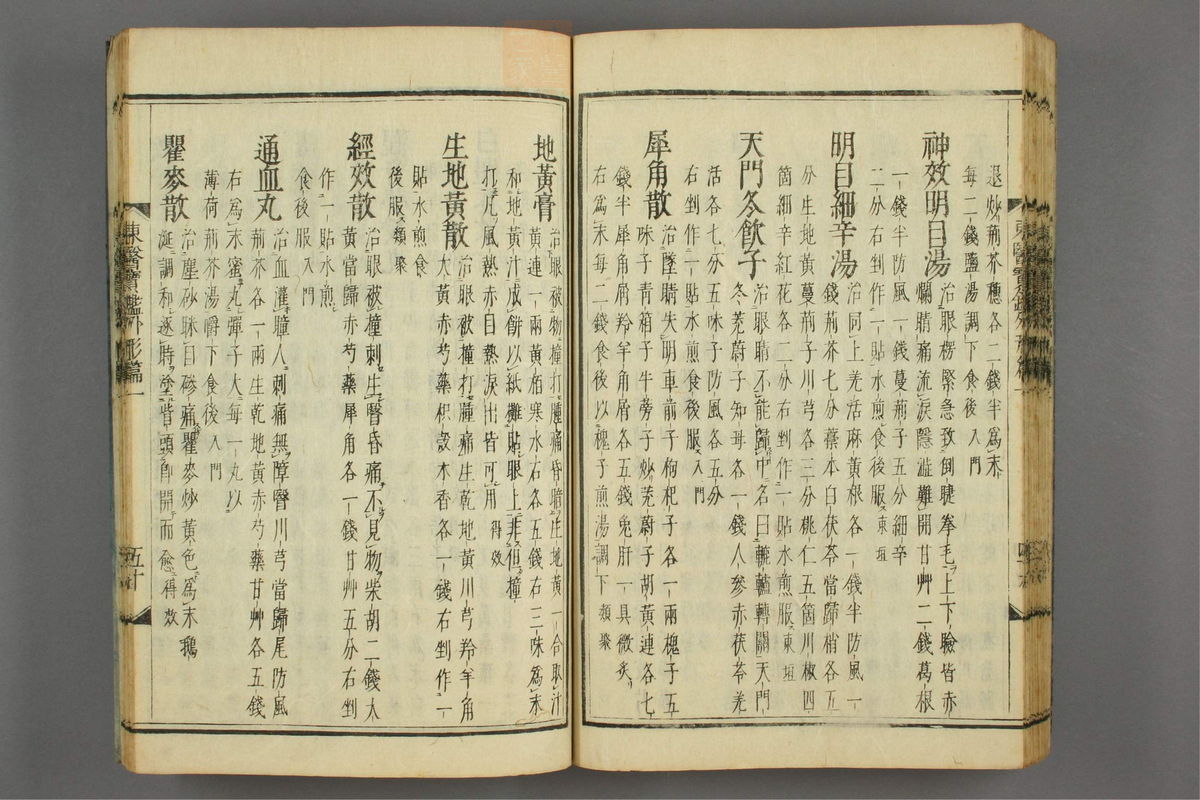 退炒荊芥穗各二錢半爲末
每二錢鹽湯調下食後入門
神效明目湯 治眼楞緊急致倒睫拳毛上下瞼皆赤
爛睛痛流淚隱澁難開甘艸二錢葛根
一錢半防風一錢蔓荊子五分細辛
二分右剉作一貼水煎食後服東垣
明目細辛湯 治同上羌活麻黃根各一錢半防風一
錢荊芥七分藁本白茯苓當歸梢各五
分生地黃蔓荊子川芎各三分桃仁五箇川椒四
箇細辛紅花各二分右剉作一貼水煎服東垣
天門冬飮子 治眼睛不能歸中名曰轆轤轉關天門
冬茺蔚子知母各一錢人參赤茯苓羌
活各七分五味子防風各五分
右剉作一貼水煎食後服入門
犀角散 治墜睛失明車前子枸杞子各一兩槐子五
味子靑箱子牛蒡子炒茺蔚子胡黃連各七
錢半犀角屑羚羊角屑各五錢兔肝一具微炙
右爲末每二錢食後以槐子煎湯調下類聚
地黃膏 治眼被物撞打腫痛昏暗生地黃一合取汁
黃連一兩黃栢寒水石各五錢右三味爲末
和地黃汁成餠以紙攤貼眼上非但撞
打凡風熱赤目熱淚出皆可用得效
生地黃散 治眼被撞打腫痛生乾地黃川芎羚羊角
大黃赤芍藥枳殼木香各一錢右剉作一
貼水煎食
後服類聚
經效散 治眼被撞刺生瞖昏痛不見物柴胡二錢大
黃當歸赤芍藥犀角各一錢甘艸五分右剉
作一貼水煎
食後服入門
通血丸 治血灌瞳人刺痛無障瞖川芎當歸尾防風
荊芥各一兩生乾地黃赤芍藥甘艸各五錢
右爲末蜜丸彈子大每一丸以
薄荷荊芥湯嚼下食後入門
瞿麥散 治塵砂眯目磣痛瞿麥炒黃色爲末鵝
涎調和逐時塗眥頭卽開而愈得效
東醫寶鑑外形篇一
五十